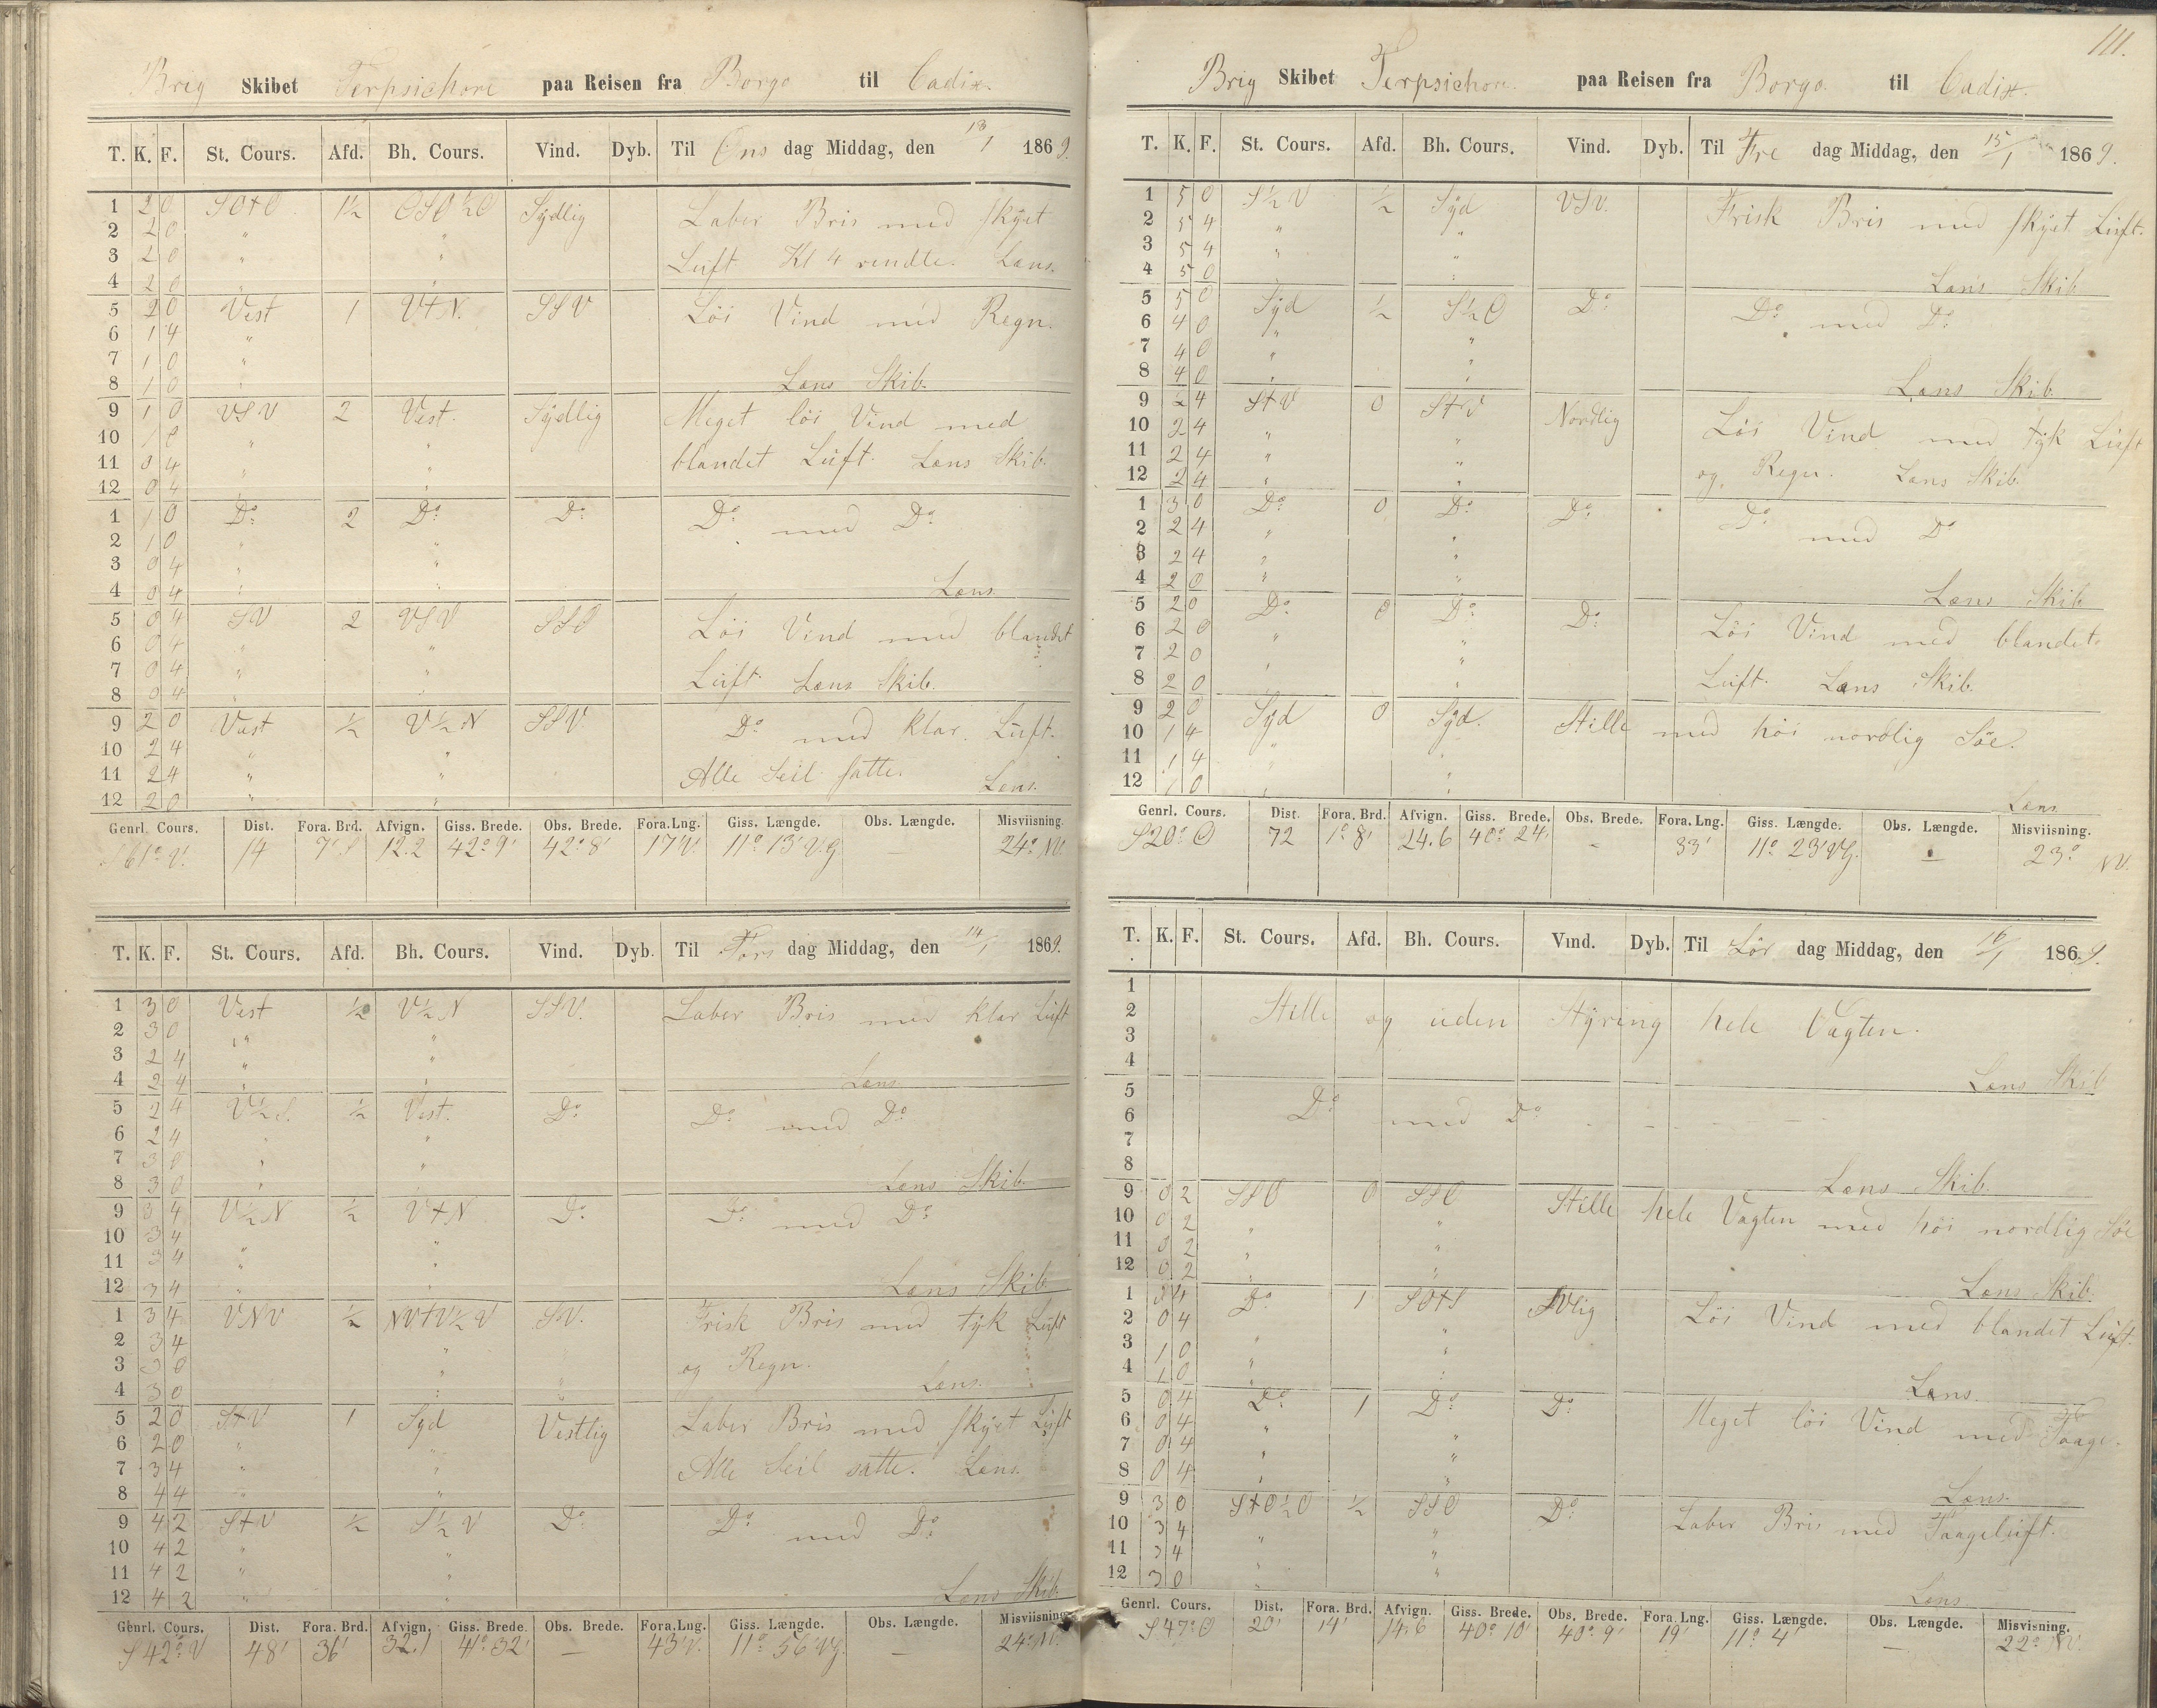 Brig Skibet Terpsichore paa Reisen fra Borgo til Cadix.
T. K. F. St. Cours. Afd. Bh. Cours. Vind. Dyb. Til Ons dag Middag, den 13/1 1869.
1 2 0 SO+O 1½ OSO½O Sÿdlig Laber Bris med skÿet
2 2 0 " "
3 2 0 " " Luft Kl 4 vendte. Læns.
4 2 0 " "
5 2 0 Vest 1 V+N. SSV Löi Vind med Regn.
6 1 4 "
7 1 0 "
8 1 0 " Læns Skib.
9 1 0 VSV 2 Vest. Sÿdlig Meget löi Vind med
10 1 0 " "
11 0 4 " " blandet Luft. Læns Skib.
12 0 4 " "
1 1 0 Do 2 Do Do Do med Do
2 1 0 " "
3 0 4 " "
4 0 4 " " Læns
5 0 4 SV 2 VSV SSO Löi Vind med blandet
6 0 4 " "
7 0 4 " " Luft. Læns Skib.
8 0 4 " "
9 2 0 Vest ½ V½N SSV. Do med klar Luft.
10 2 4 " "
11 2 4 " " Alle Seil satte. Læns.
12 2 0 " "
Genrl. Cours. Dist. Fora. Brd. Afvign. Giss. Brede. Obs. Brede. Fora.Lng. Giss. Længde. Obs. Længde. Misviisning.
S61°V. 14 7' S 12.2 42°9' 42°8' 17'V. 11°13'V.G 24° NV.
T. K. F. St. Cours. Afd. Bh. Cours. Vind. Dyb. Til Tors dag Middag, den 14/1 1869.
1 3 0 Vest ½ V½N SSV. Laber Bris med klar Luft
2 3 0 " "
3 2 4 " "
4 2 4 " " Læns
5 2 4 V½S. ½ Vest. Do Do med Do
6 2 4 " "
7 3 0 " "
8 3 0 " " Læns Skib.
9 3 4 V½N ½ V+N Do Do med Do
10 3 4 " "
11 3 4 " "
12 3 4 " " Læns Skib
1 3 4 VNV ½ NV+V½V SV. Frisk Bris med tÿk Luft
2 3 4 "
3 3 0 " " og Regn.
4 3 0 " " Læns.
5 2 0 S+V 1 Syd Vestlig Laber Bris med skÿet Luft
6 2 0 " "
7 3 4 " " Alle Seil satte. Læns.
8 4 4 " "
9 4 2 S+V ½ S½V Do Do med Do
10 4 2 " "
11 4 2 " "
12 4 2 " " Læns Skib.
Genrl. Cours. Dist. Fora. Brd. Afvign. Giss. Brede. Obs. Brede. Fora.Lng. Giss. Længde. Obs. Længde. Misviisning.
S42°V 48' 36' 32.1 41°32' — 43'V. 11°56'VG. — 24° NV.
111.
Brig Skibet Terpsichore. paa Reisen fra Borgo. til Cadix.
T. K. F. St. Cours. Afd. Bh. Cours. Vind. Dyb. Til Fre dag Middag, den 15/1 1869.
1 5 0 S½V ½ Sÿd VSV. Frisk Bris med skÿet Luft.
2 5 4 " "
3 5 4 " "
4 5 0 " " Læns Skib
5 5 0 Sÿd ½ S½O Do Do med Do
6 4 0 "
7 4 0 " "
8 4 0 " " Læns Skib.
9 2 4 S+V 0 S+V Nordlig Löi Vind med tÿk Luft
10 2 4 " "
11 2 4 " " og Regn. Læns Skib.
12 2 4 " "
1 3 0 Do 0 Do Do Do med Do
2 2 4 " "
3 2 4 " "
4 2 0 " " Læns Skib
5 2 0 Do 0 Do Do Löi Vind med blandet
6 2 0 " "
7 2 0 " " Luft. Læns Skib.
8 2 0 " "
9 2 0 Sÿd 0 Sÿd. Stille med höi nordlig Söe.
10 1 4 "
11 1 4 " "
12 1 0 " " Læns
Genrl. Cours. Dist. Fora. Brd. Afvign. Giss. Brede. Obs. Brede. Fora. Lng. Giss. Længde. Obs. Længde. Misviisning.
S20°O 72 1°8' 24.6 40°24' — 33' 11°23'VG. — 23° NV.
T. K. F. St. Cours. Afd. Bh. Cours. Vind. Dyb. Til Lör dag Middag, den 16/1 1869.
1
2 Stille og uden Stÿring hele Vagten.
3
4 Læns Skib
5
6 Do med Do - - - -
7
8 Læns Skib.
9 0 2 SSO 0 SSO Stille hele Vagten med höi nordlig Söe
10 0 2 " "
11 0 2 " "
12 0 2 " " Læns Skib.
1 0 4 Do 1 SO+S SVlig Löi Vind med blandet Luft.
2 0 4 " "
3 1 0 " "
4 1 0 " " Læns.
5 0 4 Do 1 Do Do Meget löi Vind med Taage.
6 0 4 " "
7 0 4 " "
8 0 4 " " Læns.
9 3 0 S+O½O ½ SSO Do Laber Bris med Taageluft.
10 3 4 " "
11 3 4 " "
12 3 0 " Læns
Genrl. Cours. Dist. Fora. Brd. Afvign. Giss. Brede. Obs. Brede. Fora. Lng. Giss. Længde. Obs. Længde. Misvisning.
S47°O 20' 14' 14.6 40°10' 40°9' 19' 11°4' — 22° NV.